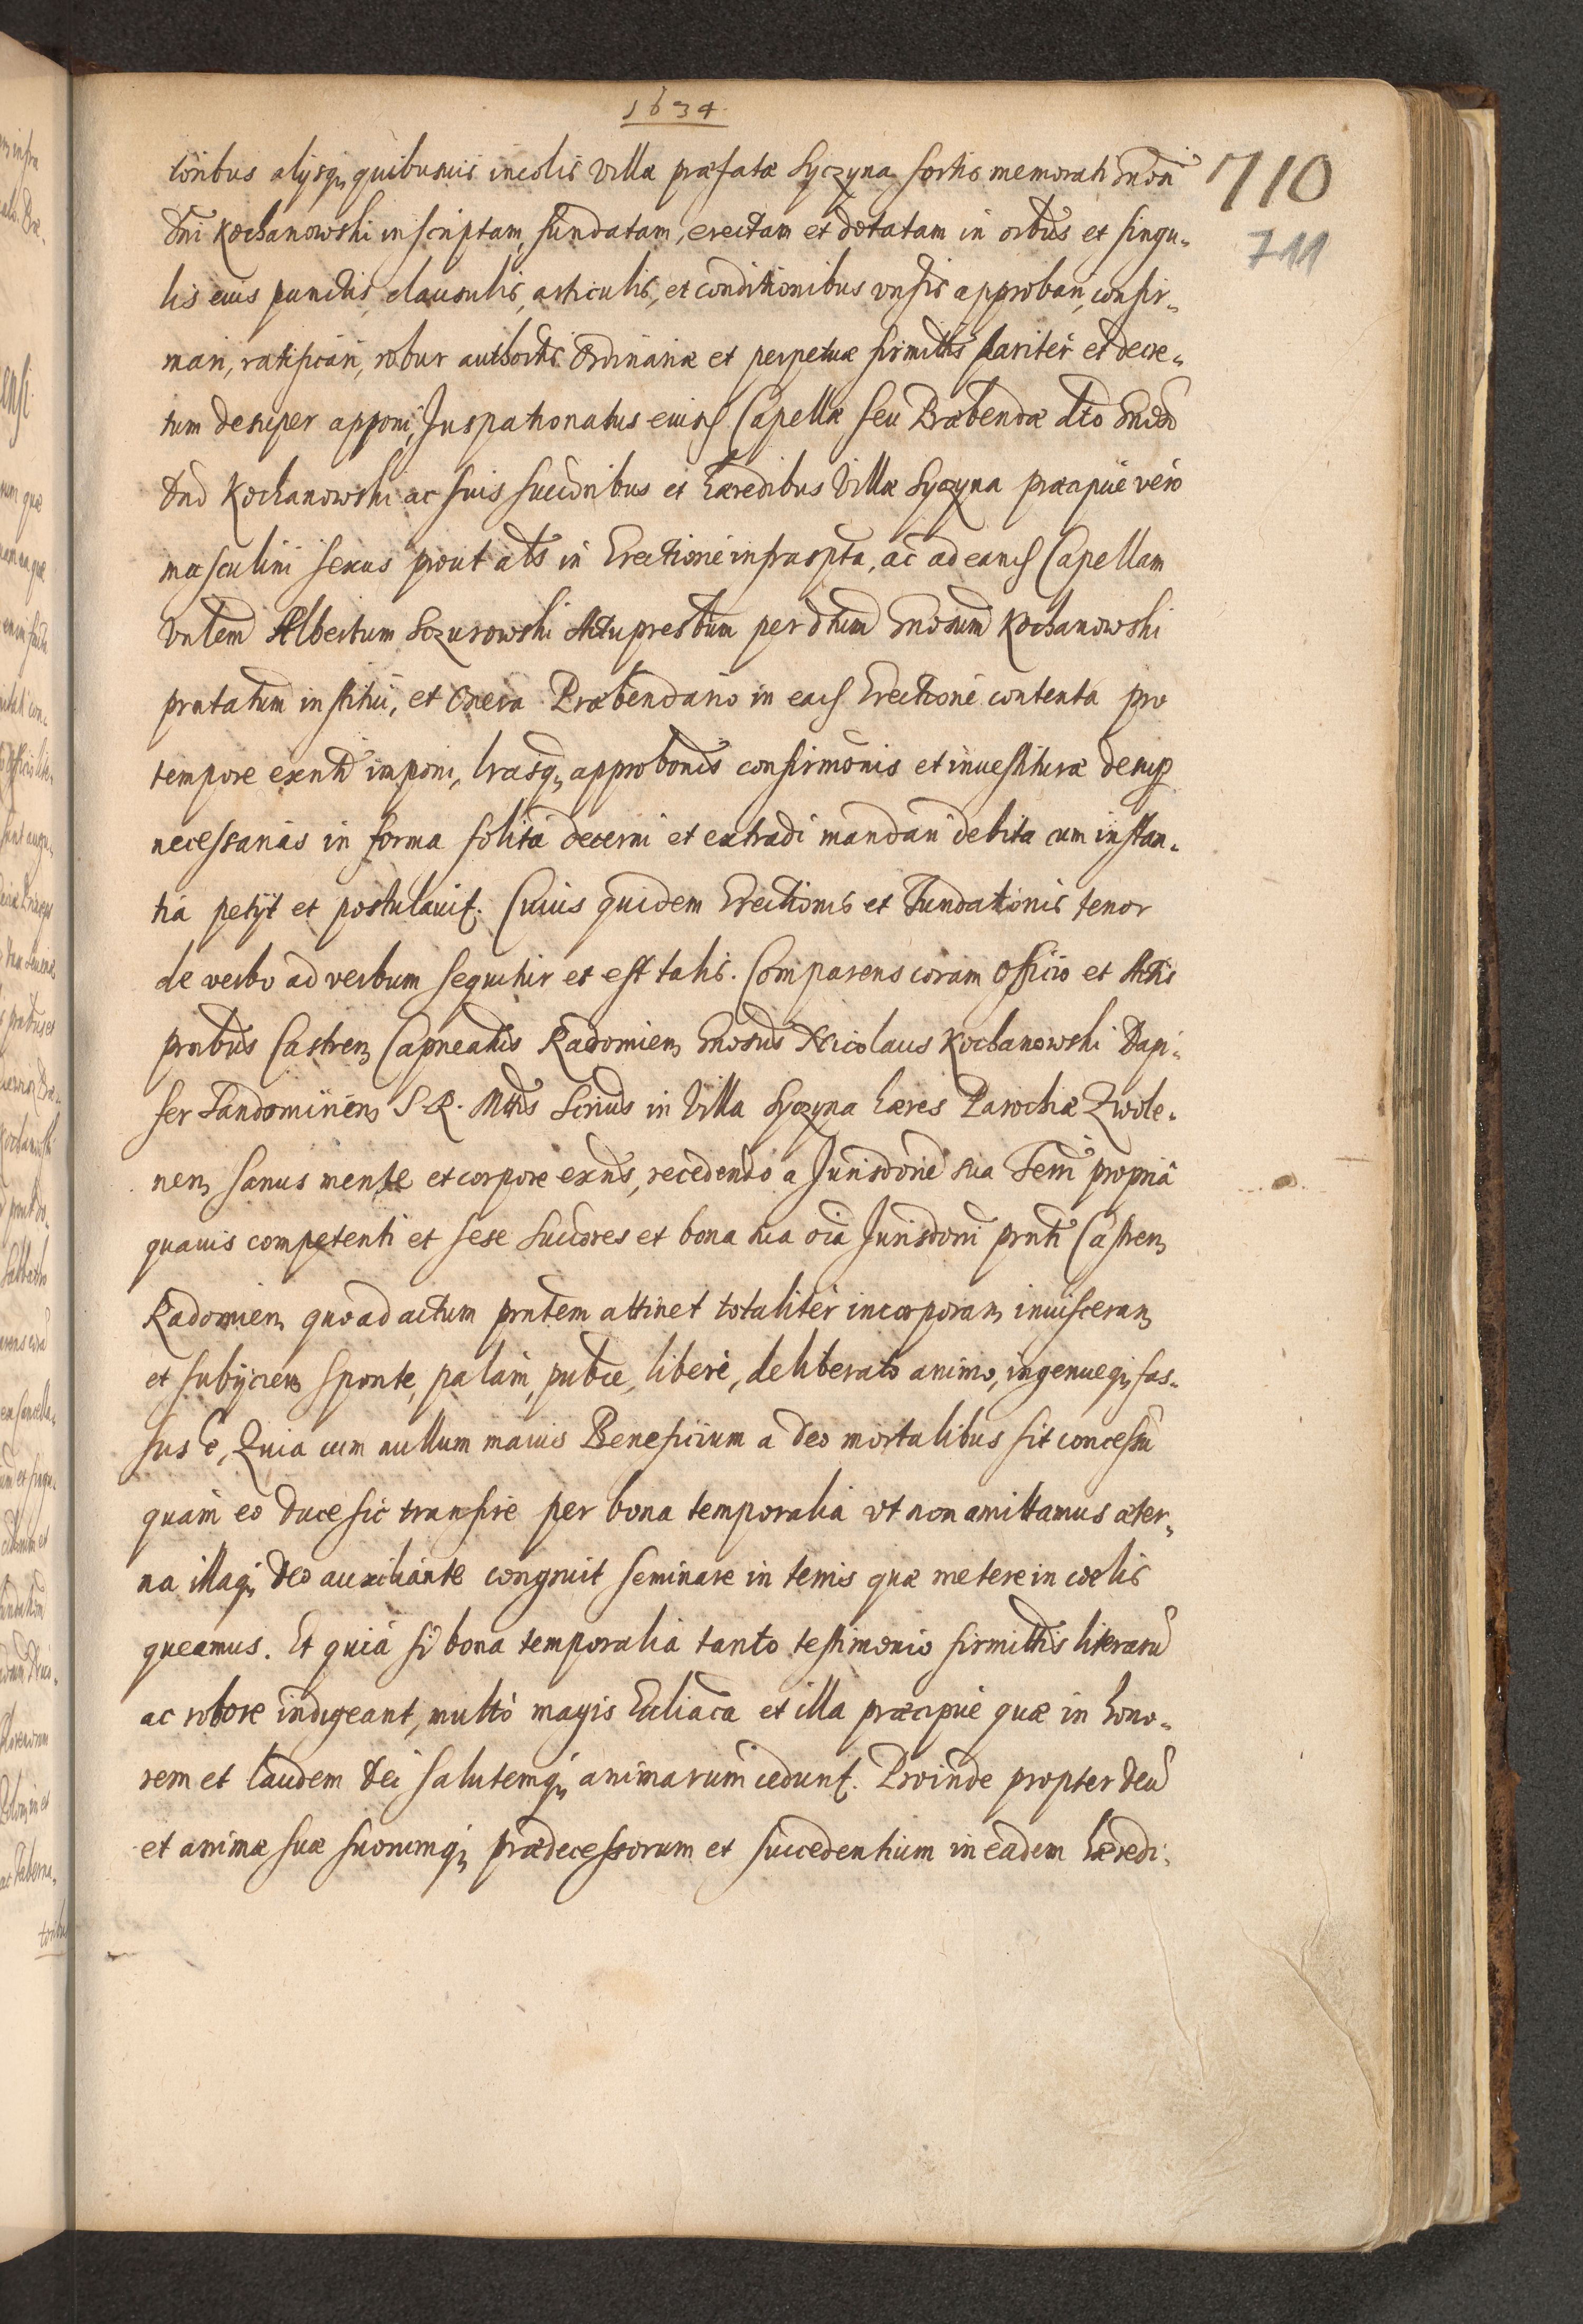 1634
710
711
toribus alijsq, quibusuis incolis Villæ præfatæ Syczyna sortis memorati Gnosi
Dni Kochanowski inscriptam, fundatam, erectam et dotatam in oibus et singu-
lis eius punctis, clausulis, articulis, et conditionibus vnsis approbari, confir-
mari, ratificari, robur authortis Ordinariæ et perpetuæ firmittis pariter et decre-
tum desuper apponi, Juspatronatus eiusd Capellæ seu Præbendæ dto Gnoso
Dno Kochanowski ac suis succoribus et hæredibus Villæ Syczyna præcipue vero
masculini sexus prout alts in Erectione infrascpta, ac ad eand Capellam
Vnlem Albertum Sczurowski Actupresbrum per dtum Gnosum Kochanowski
prntatum institui, et Onera Præbendario in ead Erectione contenta pro
tempore exnti imponi, lrasq, approbonis confirmonis et inuestituræ desup
necessarias in forma solita decerni et extradi mandari debita cum instan-
tia petijt et postulauit. Cuius quidem Erectionis et Fundationis tenor
de verbo ad verbum sequitur et est talis. Comparens coram Officio et Actis
prntibus Castren Capnealis Radomien Gnosus Nicolaus Kochanowski Dapi-
fer Sandomirien S. R. Mttis Scrius in Villa Syczyna hæres Parochiæ Zwole-
nen, sanus mente et corpore exns, recedendo a Jurisdone sua Terri propria
quauis competenti et sese succores et bona sua oia Jurisdoni prnti Castren
Radomien quoad actum prntem attinet totaliter incorporan inuisceran
et subijcien sponte, palam, publce, libere, deliberato animo, ingenueq, fas-
sus e, Quia cum nullum maius Beneficium a Deo mortalibus sit concessu
quam eo duce sic transire per bona temporalia vt non amittamus æter-
na illaq, Deo auxiliante congruit seminare in terris quæ metere in coelis
queamus. Et quia si bona temporalia tanto testimonio firmittis literaru
ac robore indigeant, multo magis Eccliaca et illa præcipue quæ in hono-
rem et laudem Dei salutemq, animarum cedunt. Proinde propter Deu
et animæ suæ suorumq, prædecessorum et succedentium in eadem hæredi-